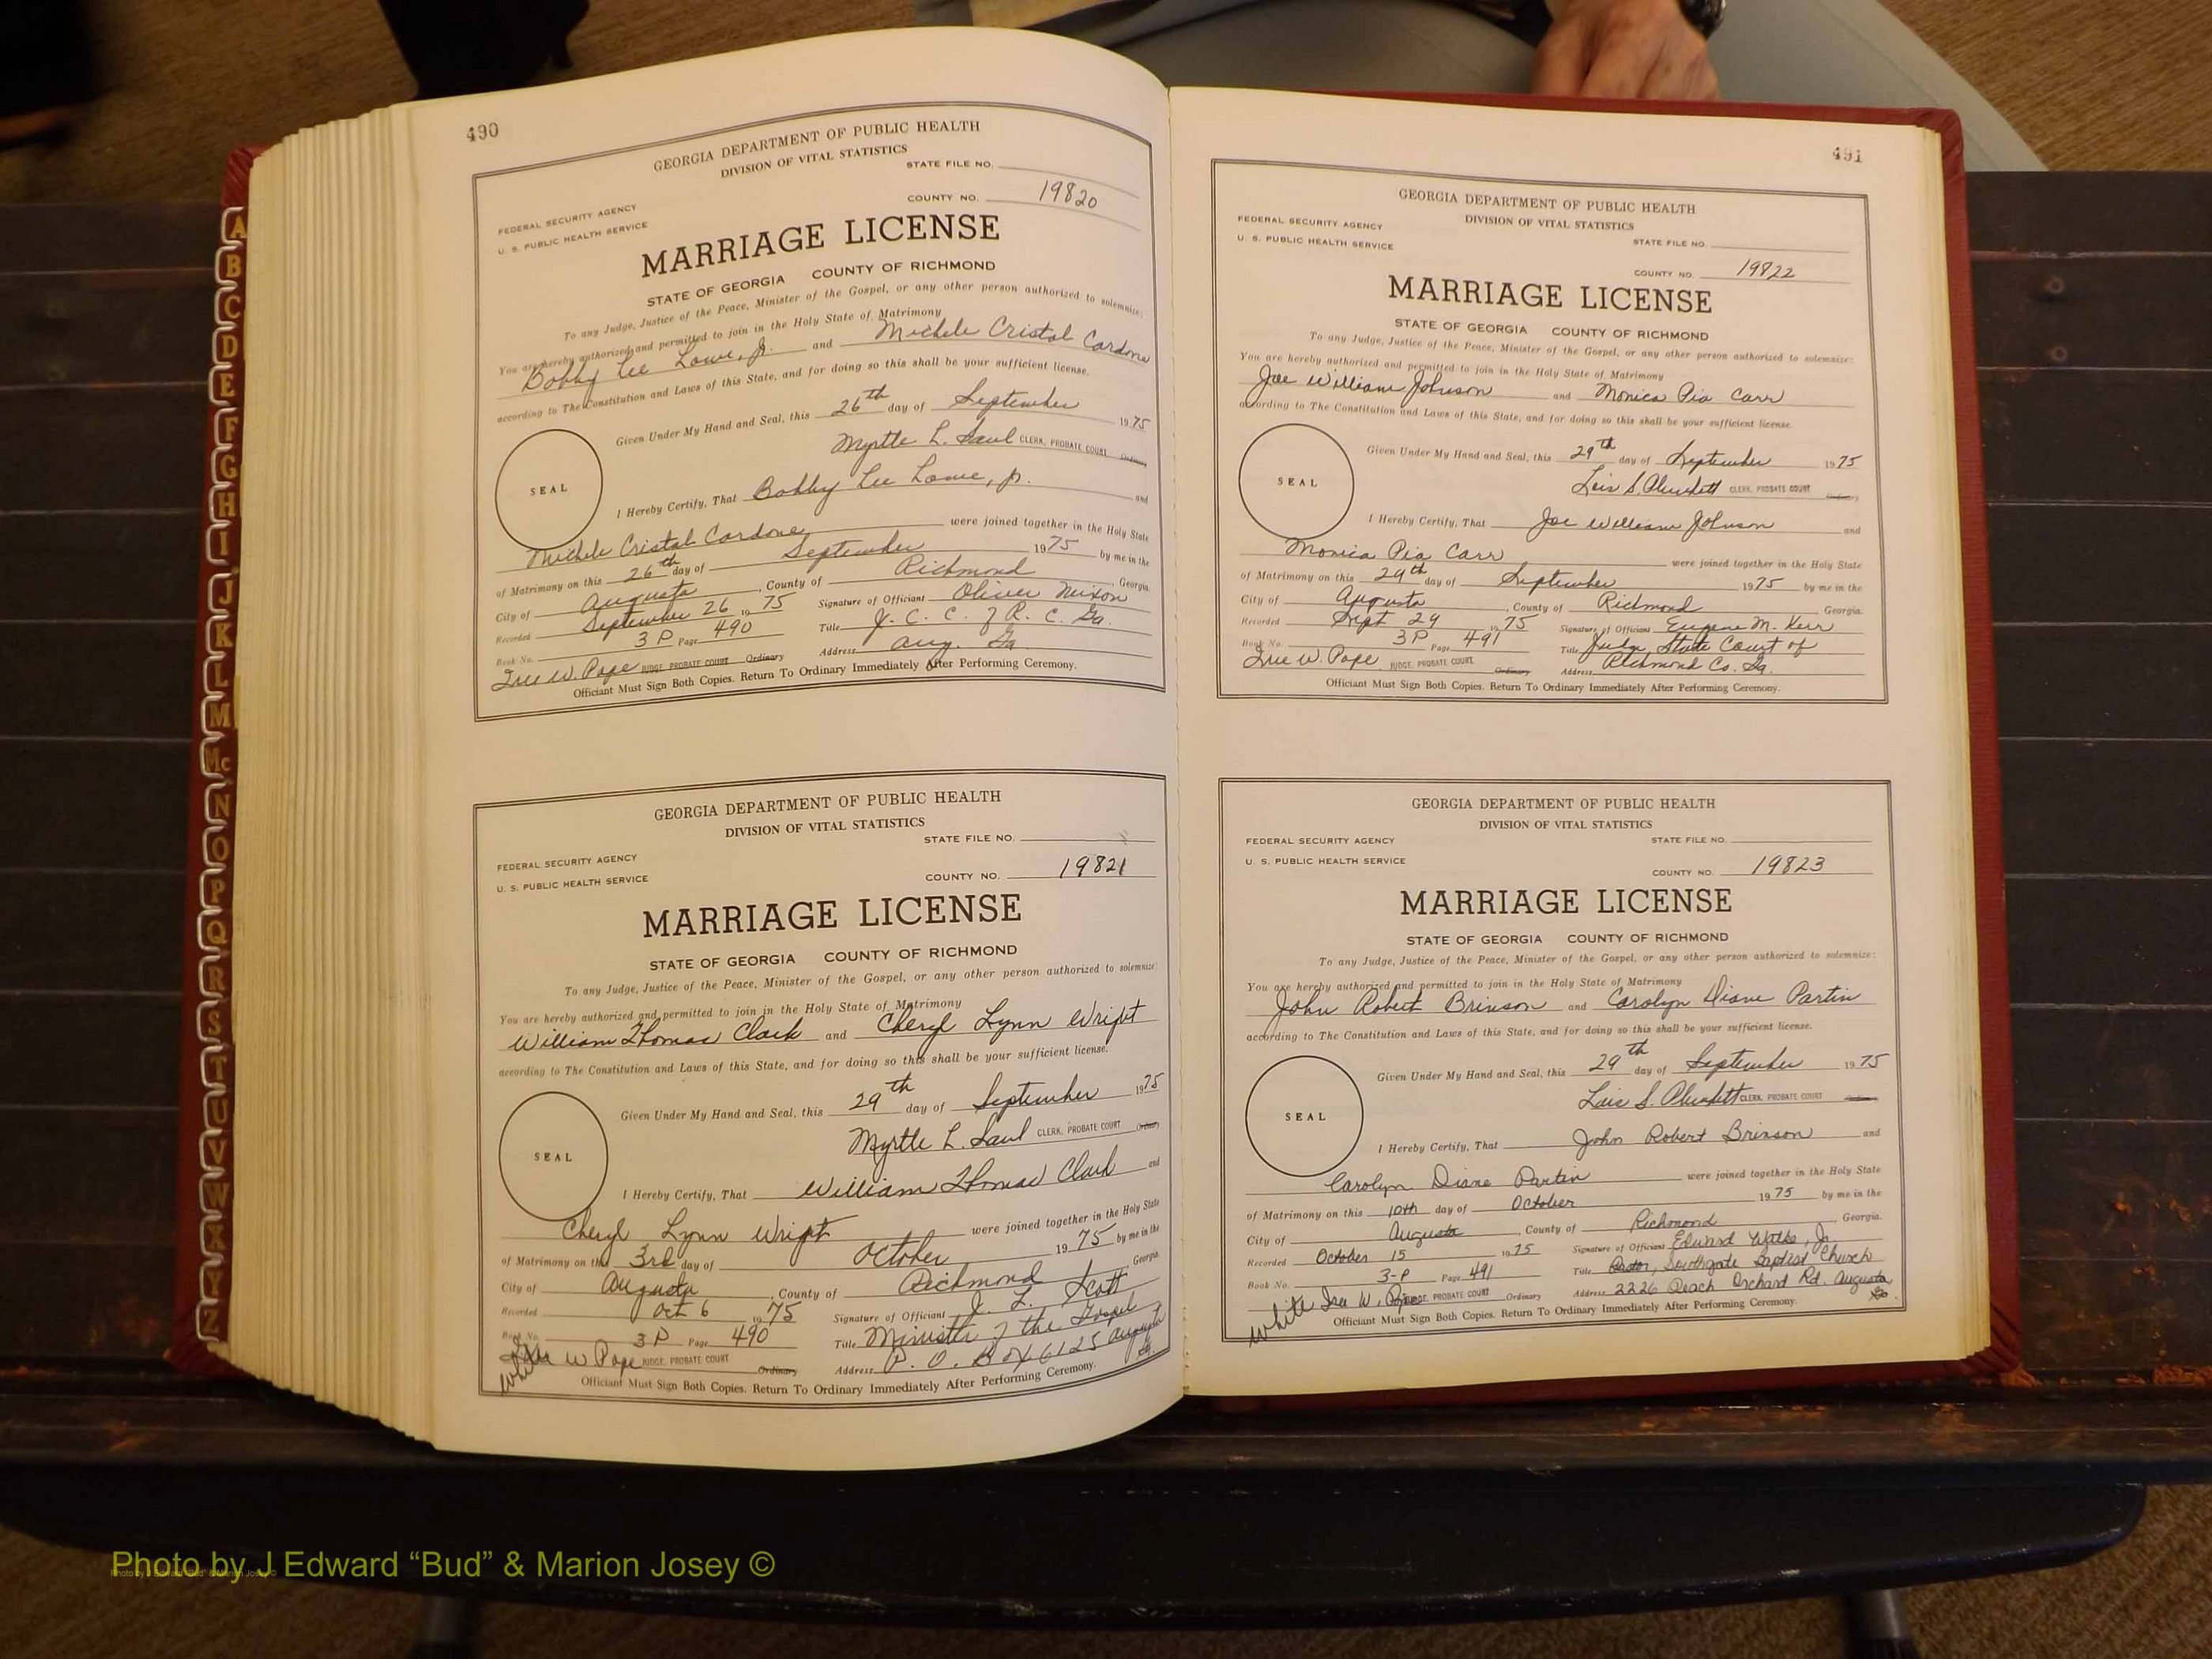 A
B
C
D
E
F
G
H
I
J
K
L
M
Mc
N
O
P
Q
R
S
T
U
V
W
X
Y
Z
490
GEORGIA DEPARTMENT OF PUBLIC HEALTH
DIVISION OF VITAL STATISTICS
STATE FILE NO.
COUNTY NO. 19820
FEDERAL SECURITY AGENCY
U. S. PUBLIC HEALTH SERVICE
MARRIAGE LICENSE
STATE OF GEORGIA COUNTY OF RICHMOND
To any Judge, Justice of the Peace, Minister of the Gospel, or any other person authorized to solemnize:
You are hereby authorized and permitted to join in the Holy State of Matrimony
Bobby Lee Lowe, Jr. and Michele Cristal Cardone
according to The Constitution and Laws of this State, and for doing so this shall be your sufficient license.
Given Under My Hand and Seal, this 26th day of September 1975
Myrtle L. Saul CLERK, PROBATE COURT Ordinary
SEAL
I Hereby Certify, That Bobby Lee Lowe, Jr. and
Michele Cristal Cardone were joined together in the Holy State
of Matrimony on this 26th day of September 1975 by me in the
City of Augusta, County of Richmond, Georgia.
Recorded September 26 1975 Signature of Officiant Oliver Nixon
Book No. 3 P Page 490 Title J. C. C. of R. C. Ga.
Iree W. Pope JUDGE, PROBATE COURT Ordinary Address Aug. Ga.
Officiant Must Sign Both Copies. Return To Ordinary Immediately After Performing Ceremony.
GEORGIA DEPARTMENT OF PUBLIC HEALTH
DIVISION OF VITAL STATISTICS
STATE FILE NO.
FEDERAL SECURITY AGENCY
U. S. PUBLIC HEALTH SERVICE
COUNTY NO. 19821
MARRIAGE LICENSE
STATE OF GEORGIA COUNTY OF RICHMOND
To any Judge, Justice of the Peace, Minister of the Gospel, or any other person authorized to solemnize:
You are hereby authorized and permitted to join in the Holy State of Matrimony
William Thomas Clark and Cheryl Lynn Wright
according to The Constitution and Laws of this State, and for doing so this shall be your sufficient license.
Given Under My Hand and Seal, this 29th day of September 1975
Myrtle L. Saul CLERK, PROBATE COURT Ordinary
SEAL
I Hereby Certify, That William Thomas Clark and
Cheryl Lynn Wright were joined together in the Holy State
of Matrimony on the 3rd day of October 1975 by me in the
City of Augusta, County of Richmond Georgia.
Recorded Oct 6 1975 Signature of Officiant J. L. Scott
Book No. 3 P Page 490 Title Minister of the Gospel
W Pope JUDGE, PROBATE COURT Ordinary Address P. O. Box 6125 Augusta Ga.
White
Officiant Must Sign Both Copies. Return To Ordinary Immediately After Performing Ceremony.
491
GEORGIA DEPARTMENT OF PUBLIC HEALTH
DIVISION OF VITAL STATISTICS
FEDERAL SECURITY AGENCY
U. S. PUBLIC HEALTH SERVICE
STATE FILE NO.
COUNTY NO. 19822
MARRIAGE LICENSE
STATE OF GEORGIA COUNTY OF RICHMOND
To any Judge, Justice of the Peace, Minister of the Gospel, or any other person authorized to solemnize:
You are hereby authorized and permitted to join in the Holy State of Matrimony
Joe William Johnson and Monica Pia Carr
according to The Constitution and Laws of this State, and for doing so this shall be your sufficient license.
Given Under My Hand and Seal, this 29th day of September 1975
Lois S. Plunkett CLERK, PROBATE COURT Ordinary
SEAL
I Hereby Certify, That Joe William Johnson and
Monica Pia Carr were joined together in the Holy State
of Matrimony on this 29th day of September 1975 by me in the
City of Augusta, County of Richmond Georgia.
Recorded Sept 29 1975 Signature of Officiant Eugene M. Kerr
Book No. 3 P Page 491 Title Judge, State Court of
Iree W. Pope JUDGE, PROBATE COURT Ordinary Address Richmond Co. Ga.
Officiant Must Sign Both Copies. Return To Ordinary Immediately After Performing Ceremony.
GEORGIA DEPARTMENT OF PUBLIC HEALTH
DIVISION OF VITAL STATISTICS
FEDERAL SECURITY AGENCY
U. S. PUBLIC HEALTH SERVICE
STATE FILE NO.
COUNTY NO. 19823
MARRIAGE LICENSE
STATE OF GEORGIA COUNTY OF RICHMOND
To any Judge, Justice of the Peace, Minister of the Gospel, or any other person authorized to solemnize:
You are hereby authorized and permitted to join in the Holy State of Matrimony
John Robert Brinson and Carolyn Diane Partin
according to The Constitution and Laws of this State, and for doing so this shall be your sufficient license.
Given Under My Hand and Seal, this 29th day of September 1975
Lois S. Plunkett CLERK, PROBATE COURT
SEAL
I Hereby Certify, That John Robert Brinson and
Carolyn Diane Partin were joined together in the Holy State
of Matrimony on this 10th day of October 1975 by me in the
City of Augusta, County of Richmond Georgia.
Recorded October 15 1975 Signature of Officiant Edward Jr.
Book No. 3-P Page 491 Title Pastor, Southgate Baptist Church
White Iree W. Pope JUDGE, PROBATE COURT Ordinary Address 2226 Peach Orchard Rd. Augusta Ga.
Officiant Must Sign Both Copies. Return To Ordinary Immediately After Performing Ceremony.
Photo by J Edward “Bud” & Marion Josey ©
Photo by J Edward "Bud" & Marion Josey ©